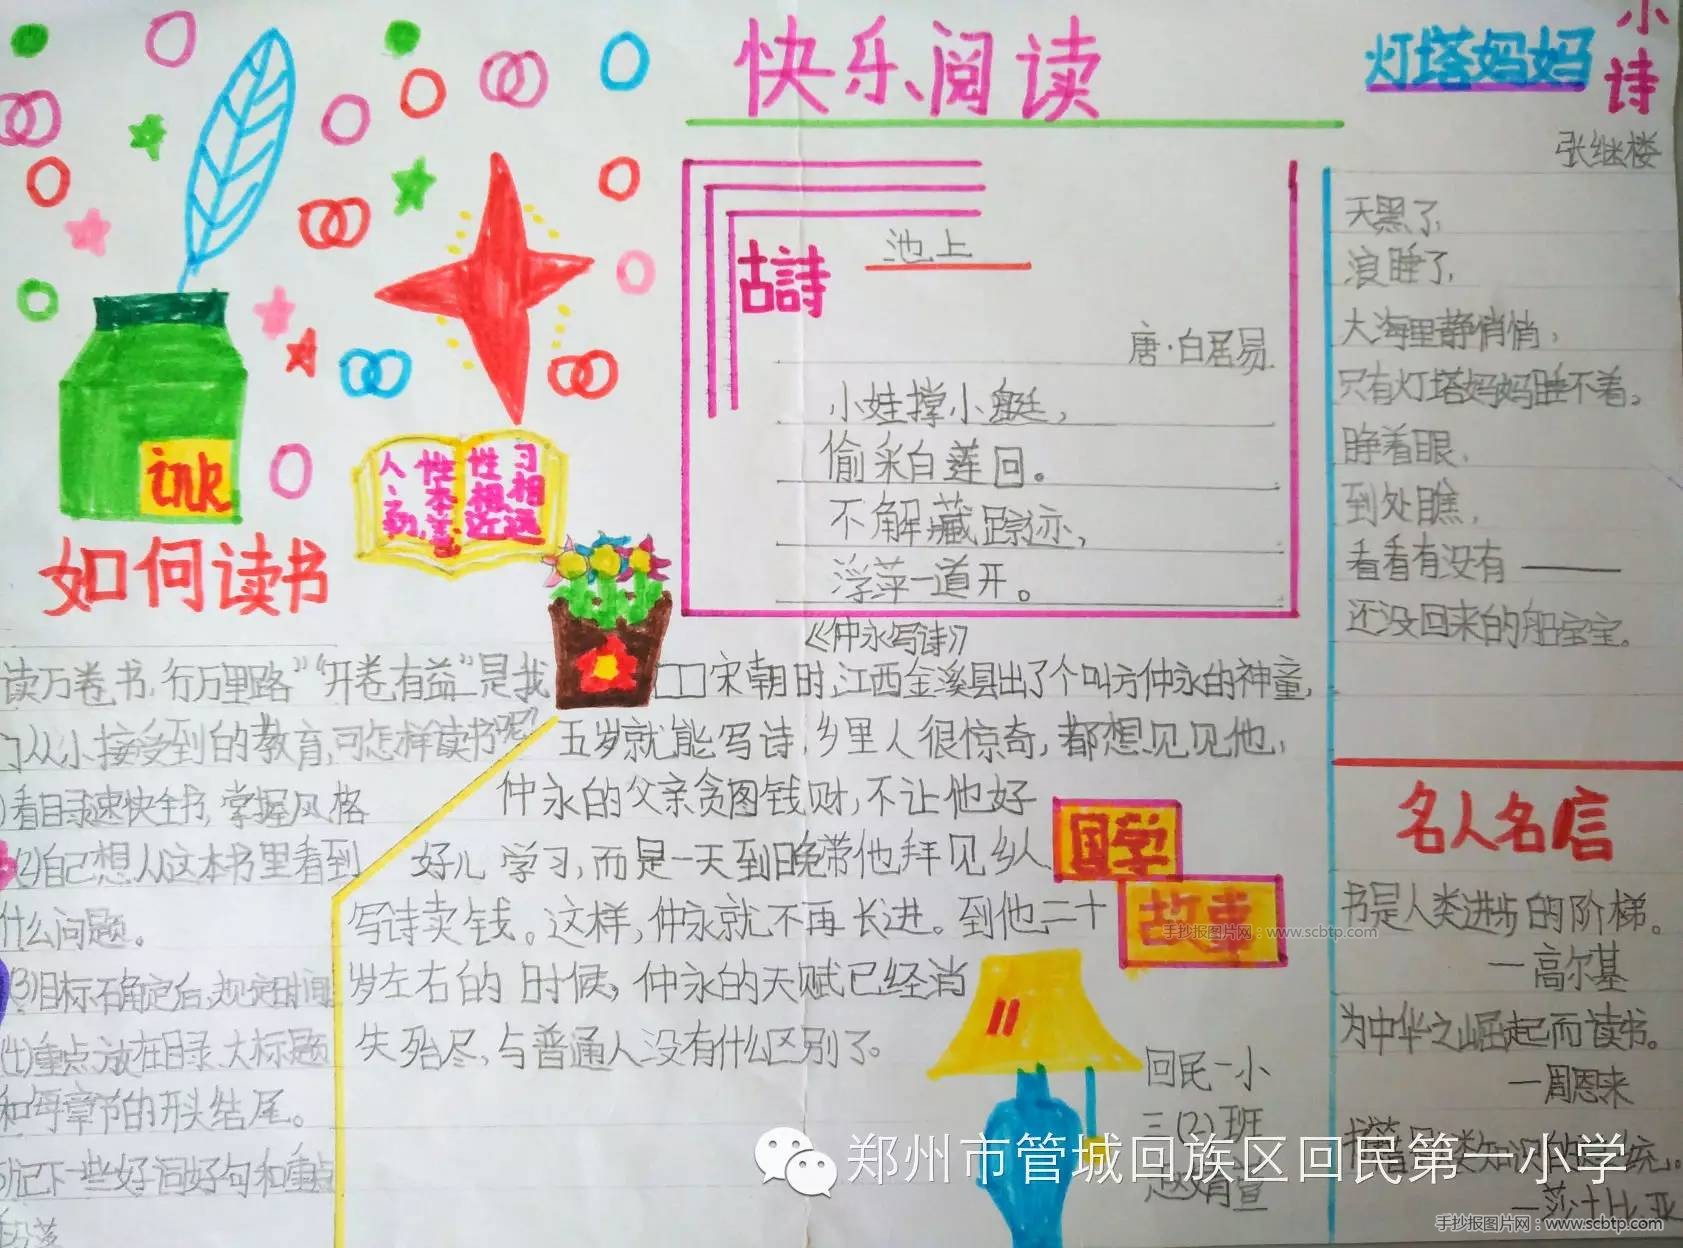 快乐阅读
灯塔妈妈
小诗
张继楼
天黑了,
浪睡了,
大海里静悄悄,
只有灯塔妈妈睡不着。
睁着眼,
到处瞧,
看看有没有——
还没回来的船宝宝。
古詩
池上
唐·白居易
小娃撑小艇,
偷采白莲回。
不解藏踪迹,
浮萍一道开。
ink
人之初,
性本善
性相近
习相远
如何读书
读万卷书,行万里路”“开卷有益”是我
门从小接受到的教育,可怎样读书呢?
)看目录速快全书,掌握风格
(2)自己想从这本书里看到
什么问题。
(3)目标确定后,规定时间
(4)重点放在目录、大标题
和每章节的开头结尾。
5)记下一些好词好句和重点
段落
《仲永写诗》
□□宋朝时,江西金溪县出了个叫方仲永的神童,
五岁就能写诗,乡里人很惊奇,都想见见他,
仲永的父亲贪图钱财,不让他好
好儿学习,而是一天到晚带他拜见乡人
写诗卖钱。这样,仲永就不再长进。到他二十
岁左右的时候,仲永的天赋已经消
失殆尽,与普通人没有什么区别了。
国学
故事
手抄报图片网:www.scbtp.com
回民一小
三(2)班
名人名信
书是人类进步的阶梯。
—高尔基
为中华之崛起而读书。
—周恩来
—莎士比亚
郑州市管城回族区回民第一小学
手抄报图片网:www.scbtp.com